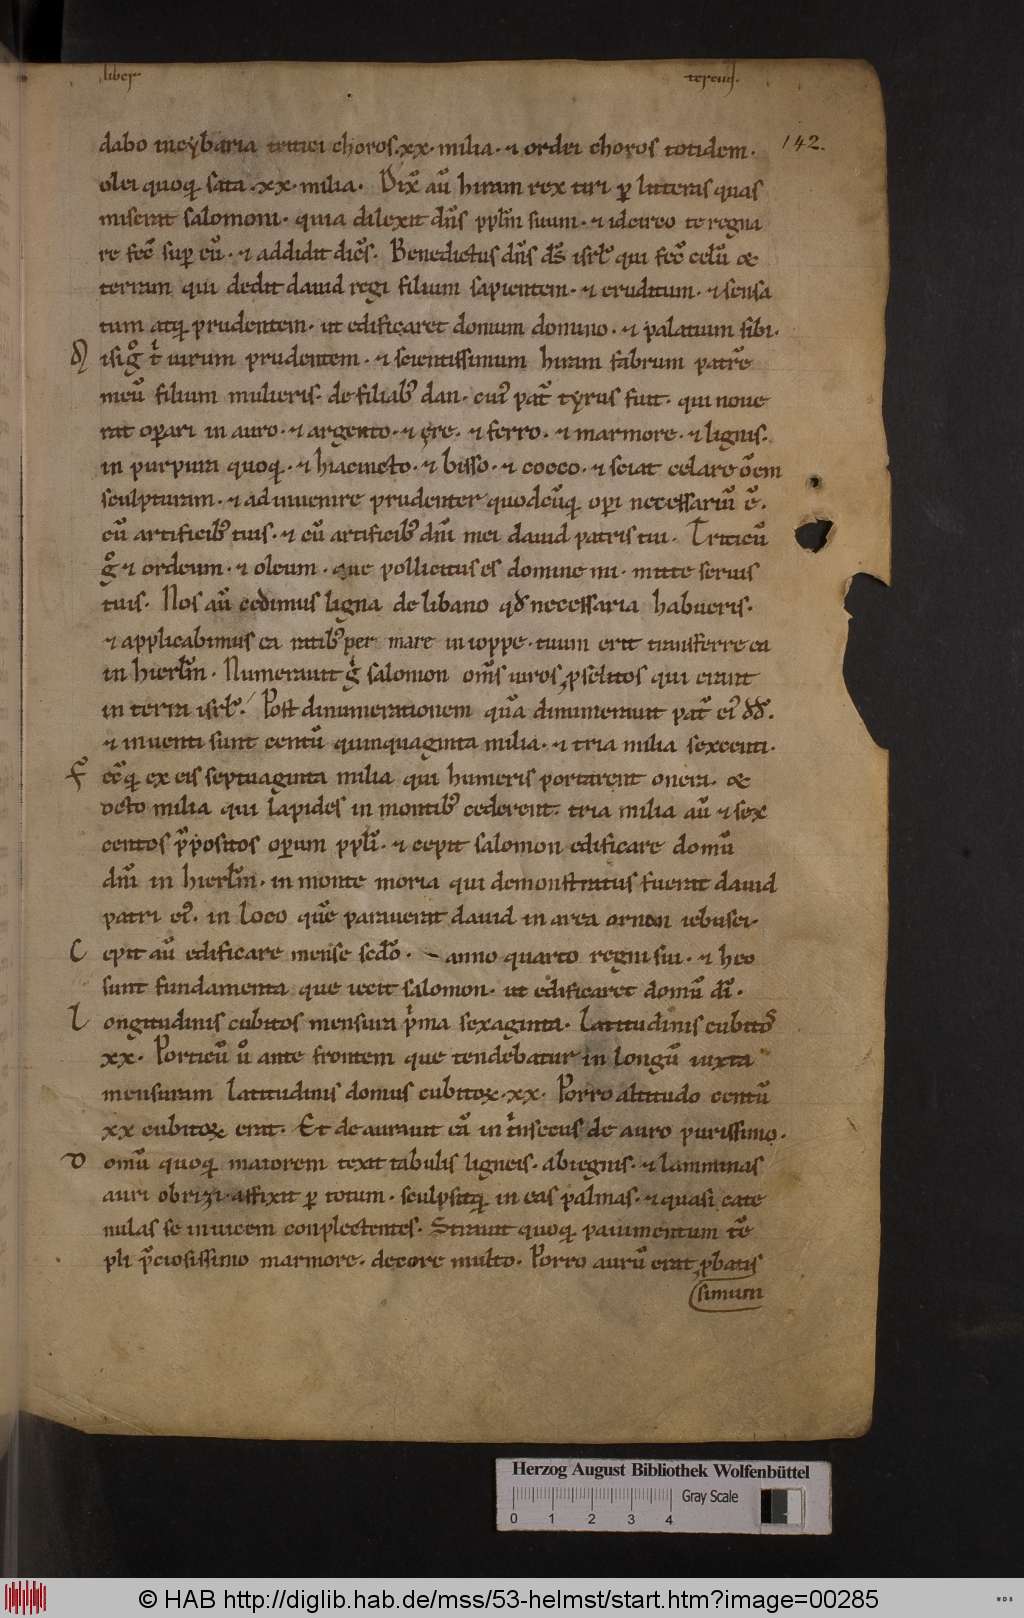 liber
142.
dabo in cybaria tritici choros .xx. milia. ⁊ ordei choros totidem.
olei quoq; sata .xx. milia. Dix̄ aū hiram rex tiri p̱ litteras quas
miserat salomoni. quia dilexit dn̄s ppl̄m suum. ⁊ idcirco te regna
re fec̄ sup̱ eū. ⁊ addidit dic̄s. Benedictus dn̄s ds̄ isrl̄ qui fec̄ celū ⁊
terram qui dedit dauid regi filium sapientem. ⁊ eruditum. ⁊ sensa
tum atq; prudentem. ut edificaret domum domino. ⁊ palatium sibi.
M isi gͦ t ͥ uirum prudentem. ⁊ scientissimum hiram fabrum patrē
meū filium mulieris. de filiabꝰ dan. cuiꝰ pat̄ tyrus fuit. qui noue
rat op̱ari in auro. ⁊ argento. ⁊ ęre. ⁊ ferro. ⁊ marmore. ⁊ lignis.
in purpura quoq;. ⁊ hiacincto. ⁊ bisso. ⁊ cocco. ⁊ sciat celare om̄em
sculpturam. ⁊ adinuenire prudenter quodcūq; op̱i necessariū ē.
cū artificibꝰ tuis. ⁊ cū artificibꝰ dn̄i mei dauid patris tui. Triticū
gͦ ⁊ ordeum. ⁊ oleum. que pollicitus es domine mi. mitte seruis
tuis. Nos aū cedimus ligna de libano qd̄ necessaria habueris.
⁊ applicabimus ea ratibꝰ per mare in ioppe. tuum erit transferre ea
in hierl̄m. Numerauit gͥ salomon om̄s uiros ꝓselitos qui erant
in terra isrl̄. Post dinumerationem quā dinumerauit pat̄ eiꝰ dd̄.
⁊ inuenti sunt centū quinquaginta milia. ⁊ tria milia sexcenti.
F ec̄q; ex eis septuaginta milia qui humeris portarent onera. ⁊
octo milia qui lapides in montibꝰ cederent. tria milia aū ⁊ sex
centos p̄positos op̱um ppl̄i. ⁊ cepit salomon edificare domū
dn̄i in hierl̄m. in monte moria qui demonstratus fuerat dauid
patri eiꝰ. in loco quē parauerat dauid in area ornon iebusei.
C epit aū edificare mense scd̄o. anno quarto regni sui. ⁊ hec
sunt fundamenta que iecit salomon. ut edificaret domū dī.
L ongitudinis cubitos mensura pͥma sexaginta. Latitudinis cubitos
xx. Porticū ūo ante frontem que tendebatur in longū iuxta
mensuram latitudinis domus cubitoꝝ .xx. Porro altitudo centū
xx cubitoꝝ erat. Et deaurauit eā intͥnsecus de auro purissimo.
D omū quoq; maiorem texit tabulis ligneis. abiegnis. ⁊ lamminas
auri obrizi affixit p̱ totum. sculpsitq; in eas palmas. ⁊ quasi cate
nulas se inuicem conplectentes. Strauit quoq; pauimentum tē
pli p̄ciosissimo marmore. decore multo. Porro aurū erat ꝓbatis
simum
Herzog August Bibliothek Wolfenbüttel
Gray Scale
0 1 2 3 4
© HAB http://diglib.hab.de/mss/53-helmst/start.htm?image=00285